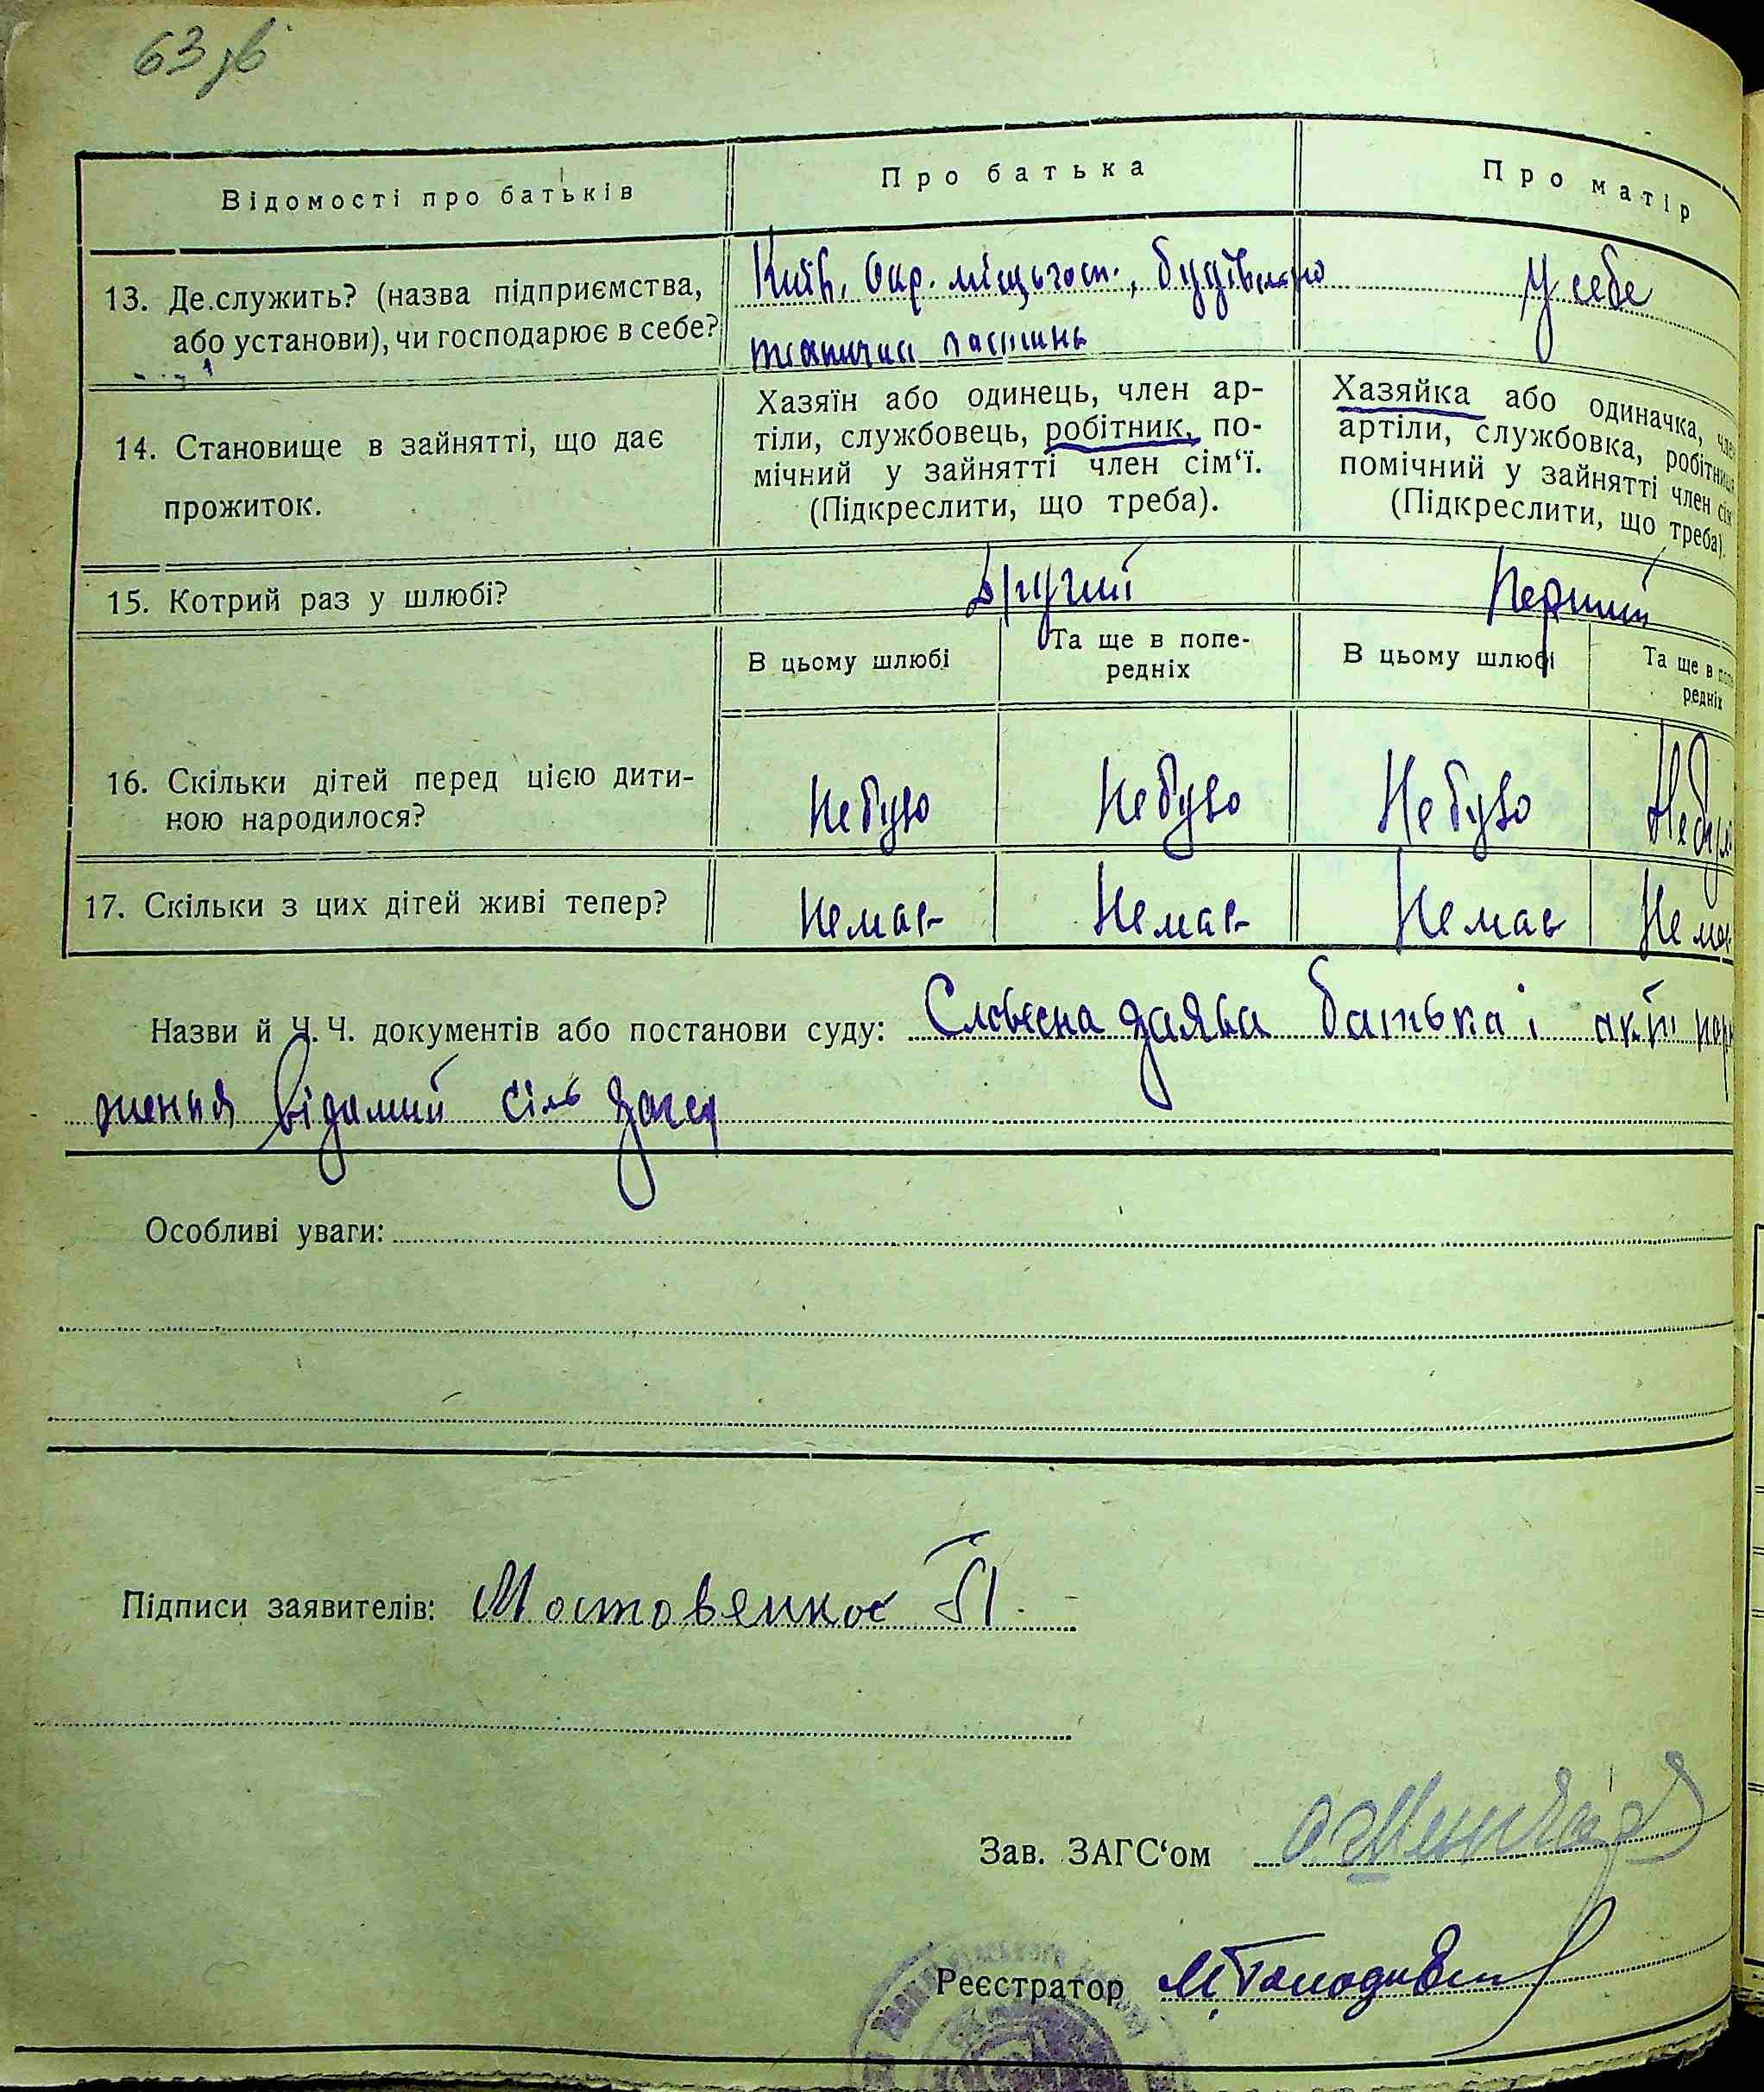 63 зв
Відомості про батьків
Про батька
Про матір
13. Де служить? (назва підприємства,
або установи), чи господарює в себе?
Київ, Окр. місцьгосп., будівельно
технична частина
У себе
14. Становище в зайнятті, що дає
прожиток.
Хазяїн або одинець, член ар-
тіли, службовець, робітник, по-
мічний у зайнятті член сім‘ї.
(Підкреслити, що треба).
Хазяйка або одиначка, чле
артіли, службовка, робітниця
помічний у зайнятті член сім
(Підкреслити, що треба).
15. Котрий раз у шлюбі?
Другий
Перший
В цьому шлюбі
Та ще в попе-
редніх
В цьому шлюбі
Та ще в попе
редніх
16. Скільки дітей перед цією дити-
ною народилося?
Не було
Не було
Не було
Не було
17. Скільки з цих дітей живі тепер?
Немає
Немає
Немає
Немає
Назви й Ч.Ч. документів або постанови суду: Словесна заява батька і акт наро
ження виданий сіль
Особливі уваги:
Підписи заявителів: Мостовенко П.
Зав. ЗАГС‘ом
Реєстратор